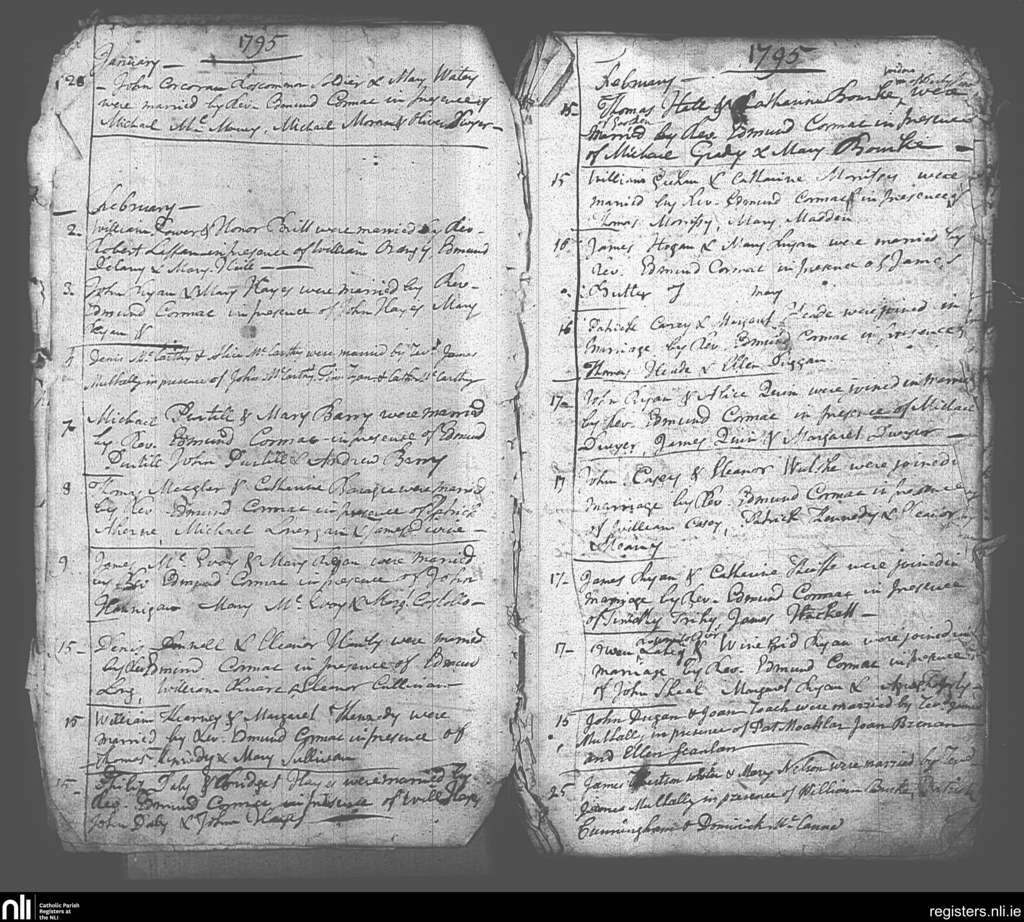 1795
January —
28 - John Corcoran Roscommon & Mary
were married by Rev. Edmund Cormac in presence of
Michael Mc. Michael Moran & Oliver Dwyer —
February —
2. William Power & Honor Britt were married by Rev.
Robert Laffan in presence of William Edmund
Delany & Mary —
3. John Ryan & Mary Hayes were married by Rev.
Edmund Cormac in presence of John Hayes Mary
Ryan &
4 Denis McCarthy & Alice McCarthy were married by Revd. James
Mulhally in presence of John McCarthy, Tim Ryan & Cath. McCarthy
7. Michael Purtill & Mary Barry were married
by Rev. Edmund Cormac in presence of Edmund
Purtill John Purtill & Andrew Barry
8 Thomas Meagher & Catherine were married
by Rev. Edmund Cormac in presence of Patrick
Aherne, Michael Lonergan & James
9 James Mc. Evoy & Mary Regan were married
by Rev Edmund Cormac in presence of John
Hannigan Mary Mc. Evoy & Margt. Costollo —
15 - Denis & Eleanor were married
by Rev Edmund Cormac in presence of Edmund
Long, William & Eleanor Cullinan
15 William Kearney & Margaret Kennedy were
married by Rev. Edmund Cormac in presence of
Thomas Kennedy & Mary Sullivan
15 - Philip Daly & Bridget Hayes were married by
Rev. Edmund Cormac in presence of Will Hayes,
John Daly & John Hayes
1795
February —
15 - Thomas Hall & Catharine Bourke, widow were
married by Rev. Edmund Cormac in presence
of Michael Grady & Mary Bourke —
15 William & Catharine Morrissy were
married by Rev. Edmund Cormack in presence of
Thomas Morrissy, Mary Madden
16 - James Hogan & Mary Ryan were married by
Rev. Edmund Cormac in presence of James
Butler &
16 Patrick Carey & Margaret Meade were joined in
marriage by Rev. Edmund Cormac in presence of
Thomas Meade & Ellen Diggan
17 - John Ryan & Alice Quin were joined in marriage
by Rev. Edmund Cormac in presence of Michael
Dwyer, James Quin & Margaret Dwyer —
17 John Casey & Eleanor Walshe were joined in
marriage by Rev. Edmund Cormac in presence
of William Casey, Patrick Kennedy & Eleanor
17 - James Ryan & Catherine Keeffe were joined in
marriage by Rev. Edmund Cormac in presence
of Timothy James Hackett —
17 - Owen Lahy & Winefrid Ryan were joined in
marriage by Rev. Edmund Cormac in presence
of John Sheal Margaret Ryan &
16 John Dugan & Joan Roach were married by Revd James
Mulhally, in presence of Pat Joan Brenan
and Ellen Scanlan
25 James White & Mary Nelson were married by Revd
James Mulhally in presence of William Burke, Patrick
Cunningham & Dominick McCanna
nli
Catholic Parish
Registers at
the NLI
registers.nli.ie